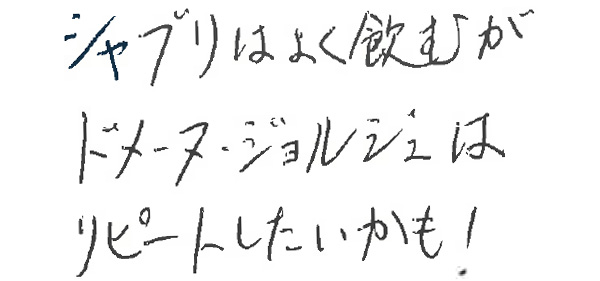 シャブリはよく飲むが
ドメーヌ・ジョルジュは
リピートしたいかも！